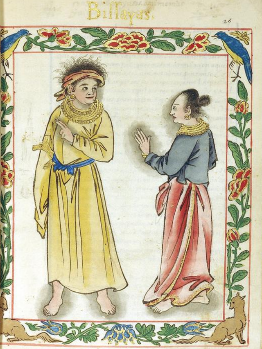 Bissayas.
26